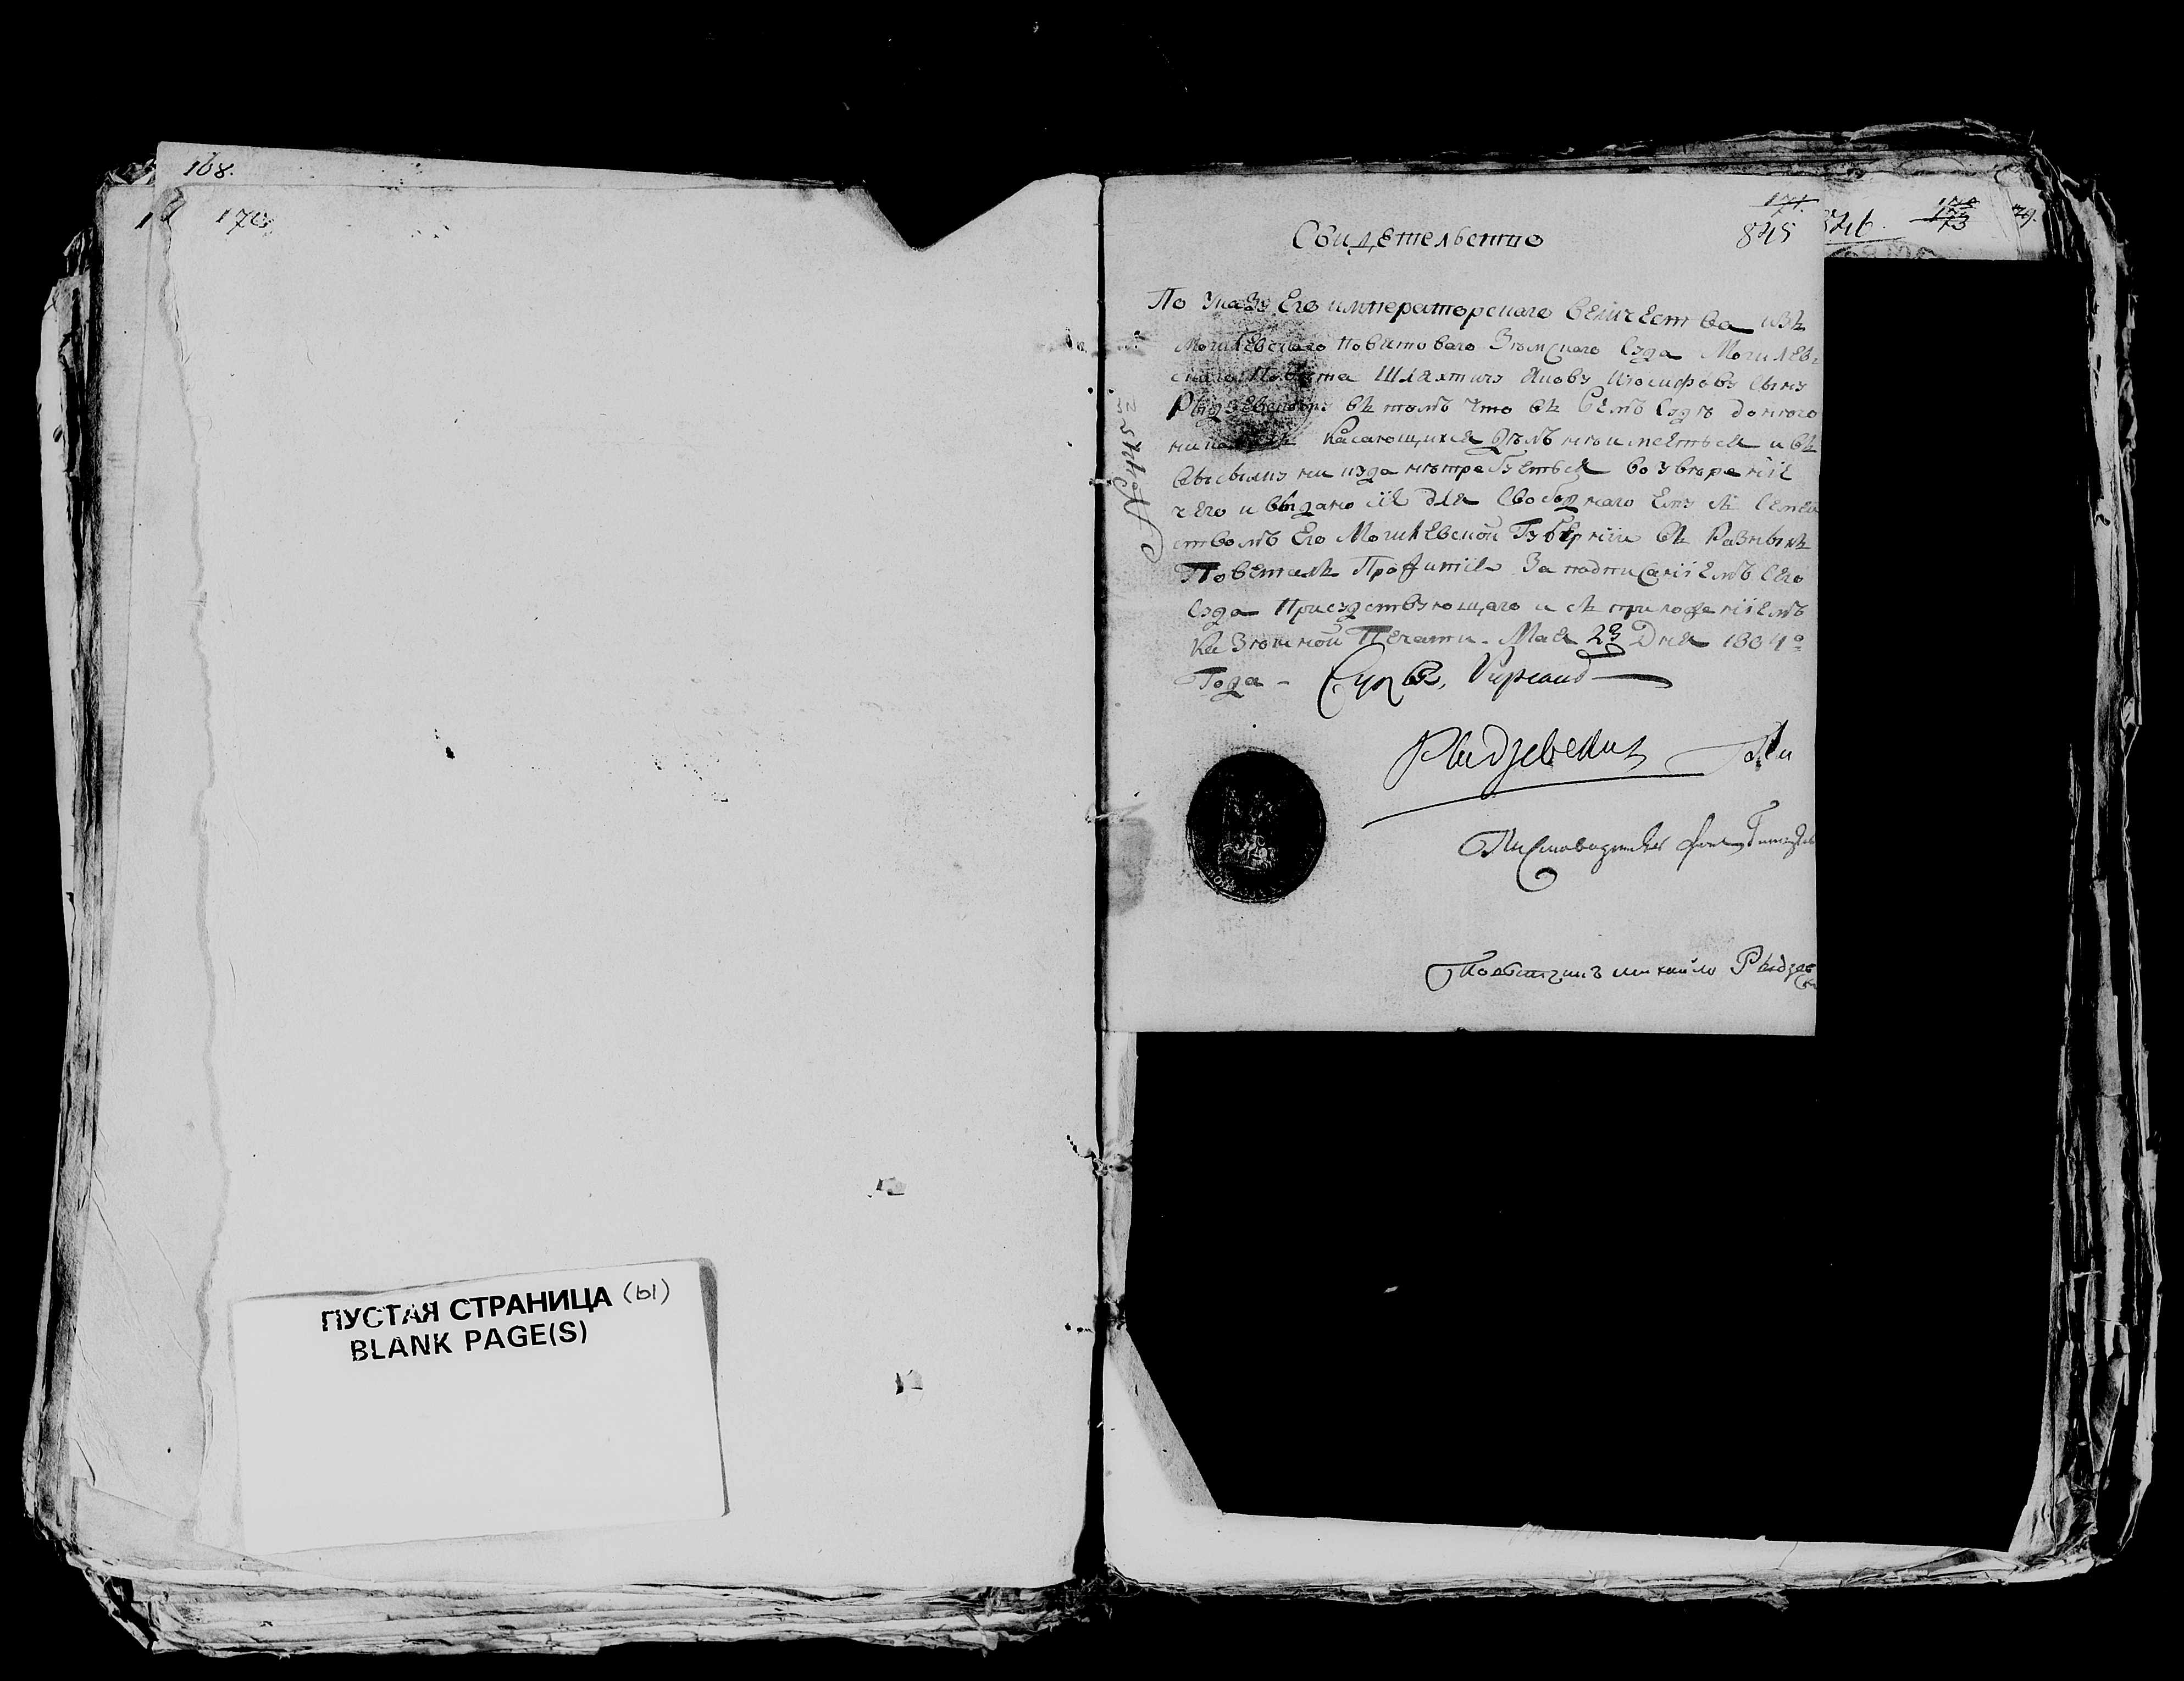 168.
170
ПУСТАЯ СТРАНИЦА (ы)
BLANK PAGE(S)
171.
845
846.
173
Свидетельство
По Указу Его императорскаго Величества изъ
Могилевскаго повитоваго Земскаго Суда Могилев-
скаго Повета Шляхтичу Якову Иосифову сыну
Рыдзевскому въ томъ что въ Семъ Суде до него
касающихся делъ неимеетъся и въ
высылку ни куда нетребуетъся во уверение
чего и выдано сiе для Свободнаго Ему съ Семей
ствомъ Его Могилевской Губернiи въ Разныхъ
Поветахъ Прожитiя За подписанiемъ Сего
Суда Присудствующаго и съ приложенiемъ
Казенной Печати. Мая 23 Дня 1804го
Года -
Рыдзевскиъ
михайло Рыдзев
№ 452